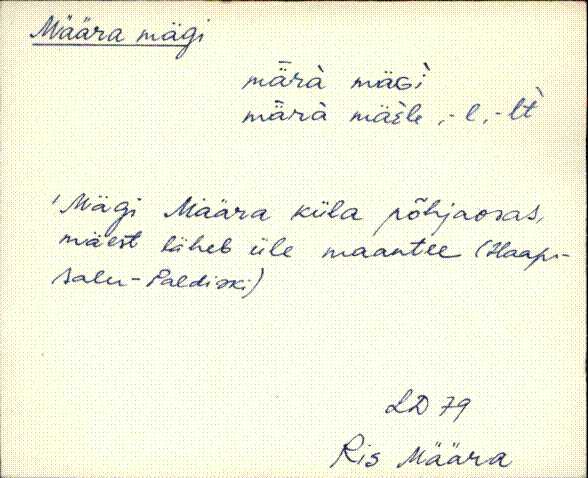 Määra mägi
mǟrà mäGì
mǟrà mäèle, -l, -lt̀
Mägi Määra küla põhjaosas,
mäest läheb üle maantee (Haap-
salu-Paldiski)
LD 79
Ris Määra